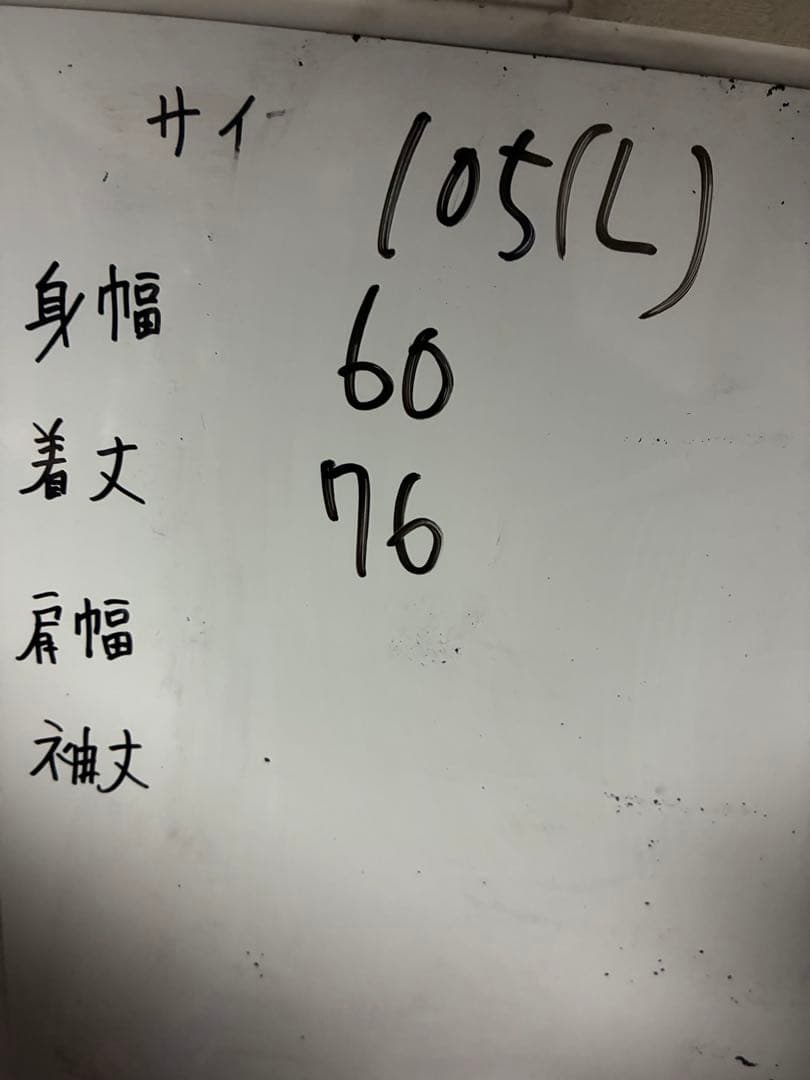 サイ 105(L)
身幅 60
着丈 76
肩幅
袖丈